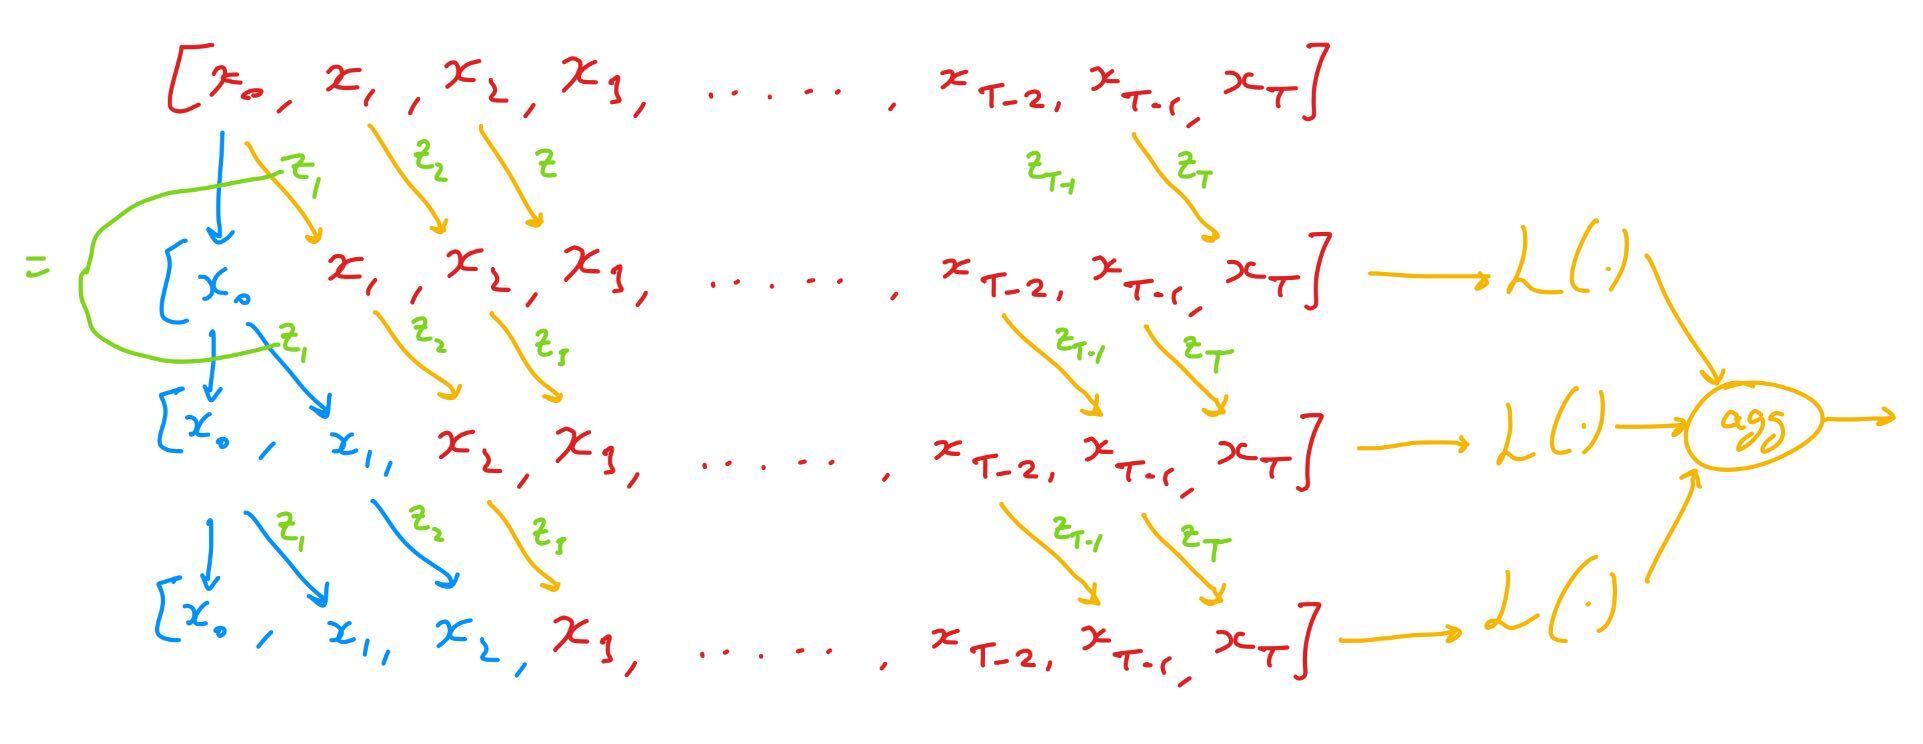 [x₀, x₁, x₂, x₃, ........, x_{T-2}, x_{T-1}, x_T]
z₁ z₂ z z_{T-1} z_T
= [x₀ x₁, x₂, x₃, ........, x_{T-2}, x_{T-1}, x_T] L(·)
z₁ z₂ z₃ z_{T-1} z_T
[x₀, x₁, x₂, x₃, ........, x_{T-2}, x_{T-1}, x_T] L(·) agg
z₁ z₂ z₃ z_{T-1} z_T
[x₀, x₁, x₂, x₃, ........, x_{T-2}, x_{T-1}, x_T] L(·)